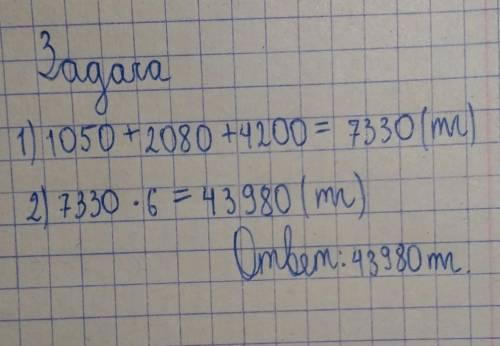 Задача
1) 1050 + 2080 + 4200 = 7330 (т)
2) 7330 · 6 = 43980 (т)
Ответ: 43980 т.